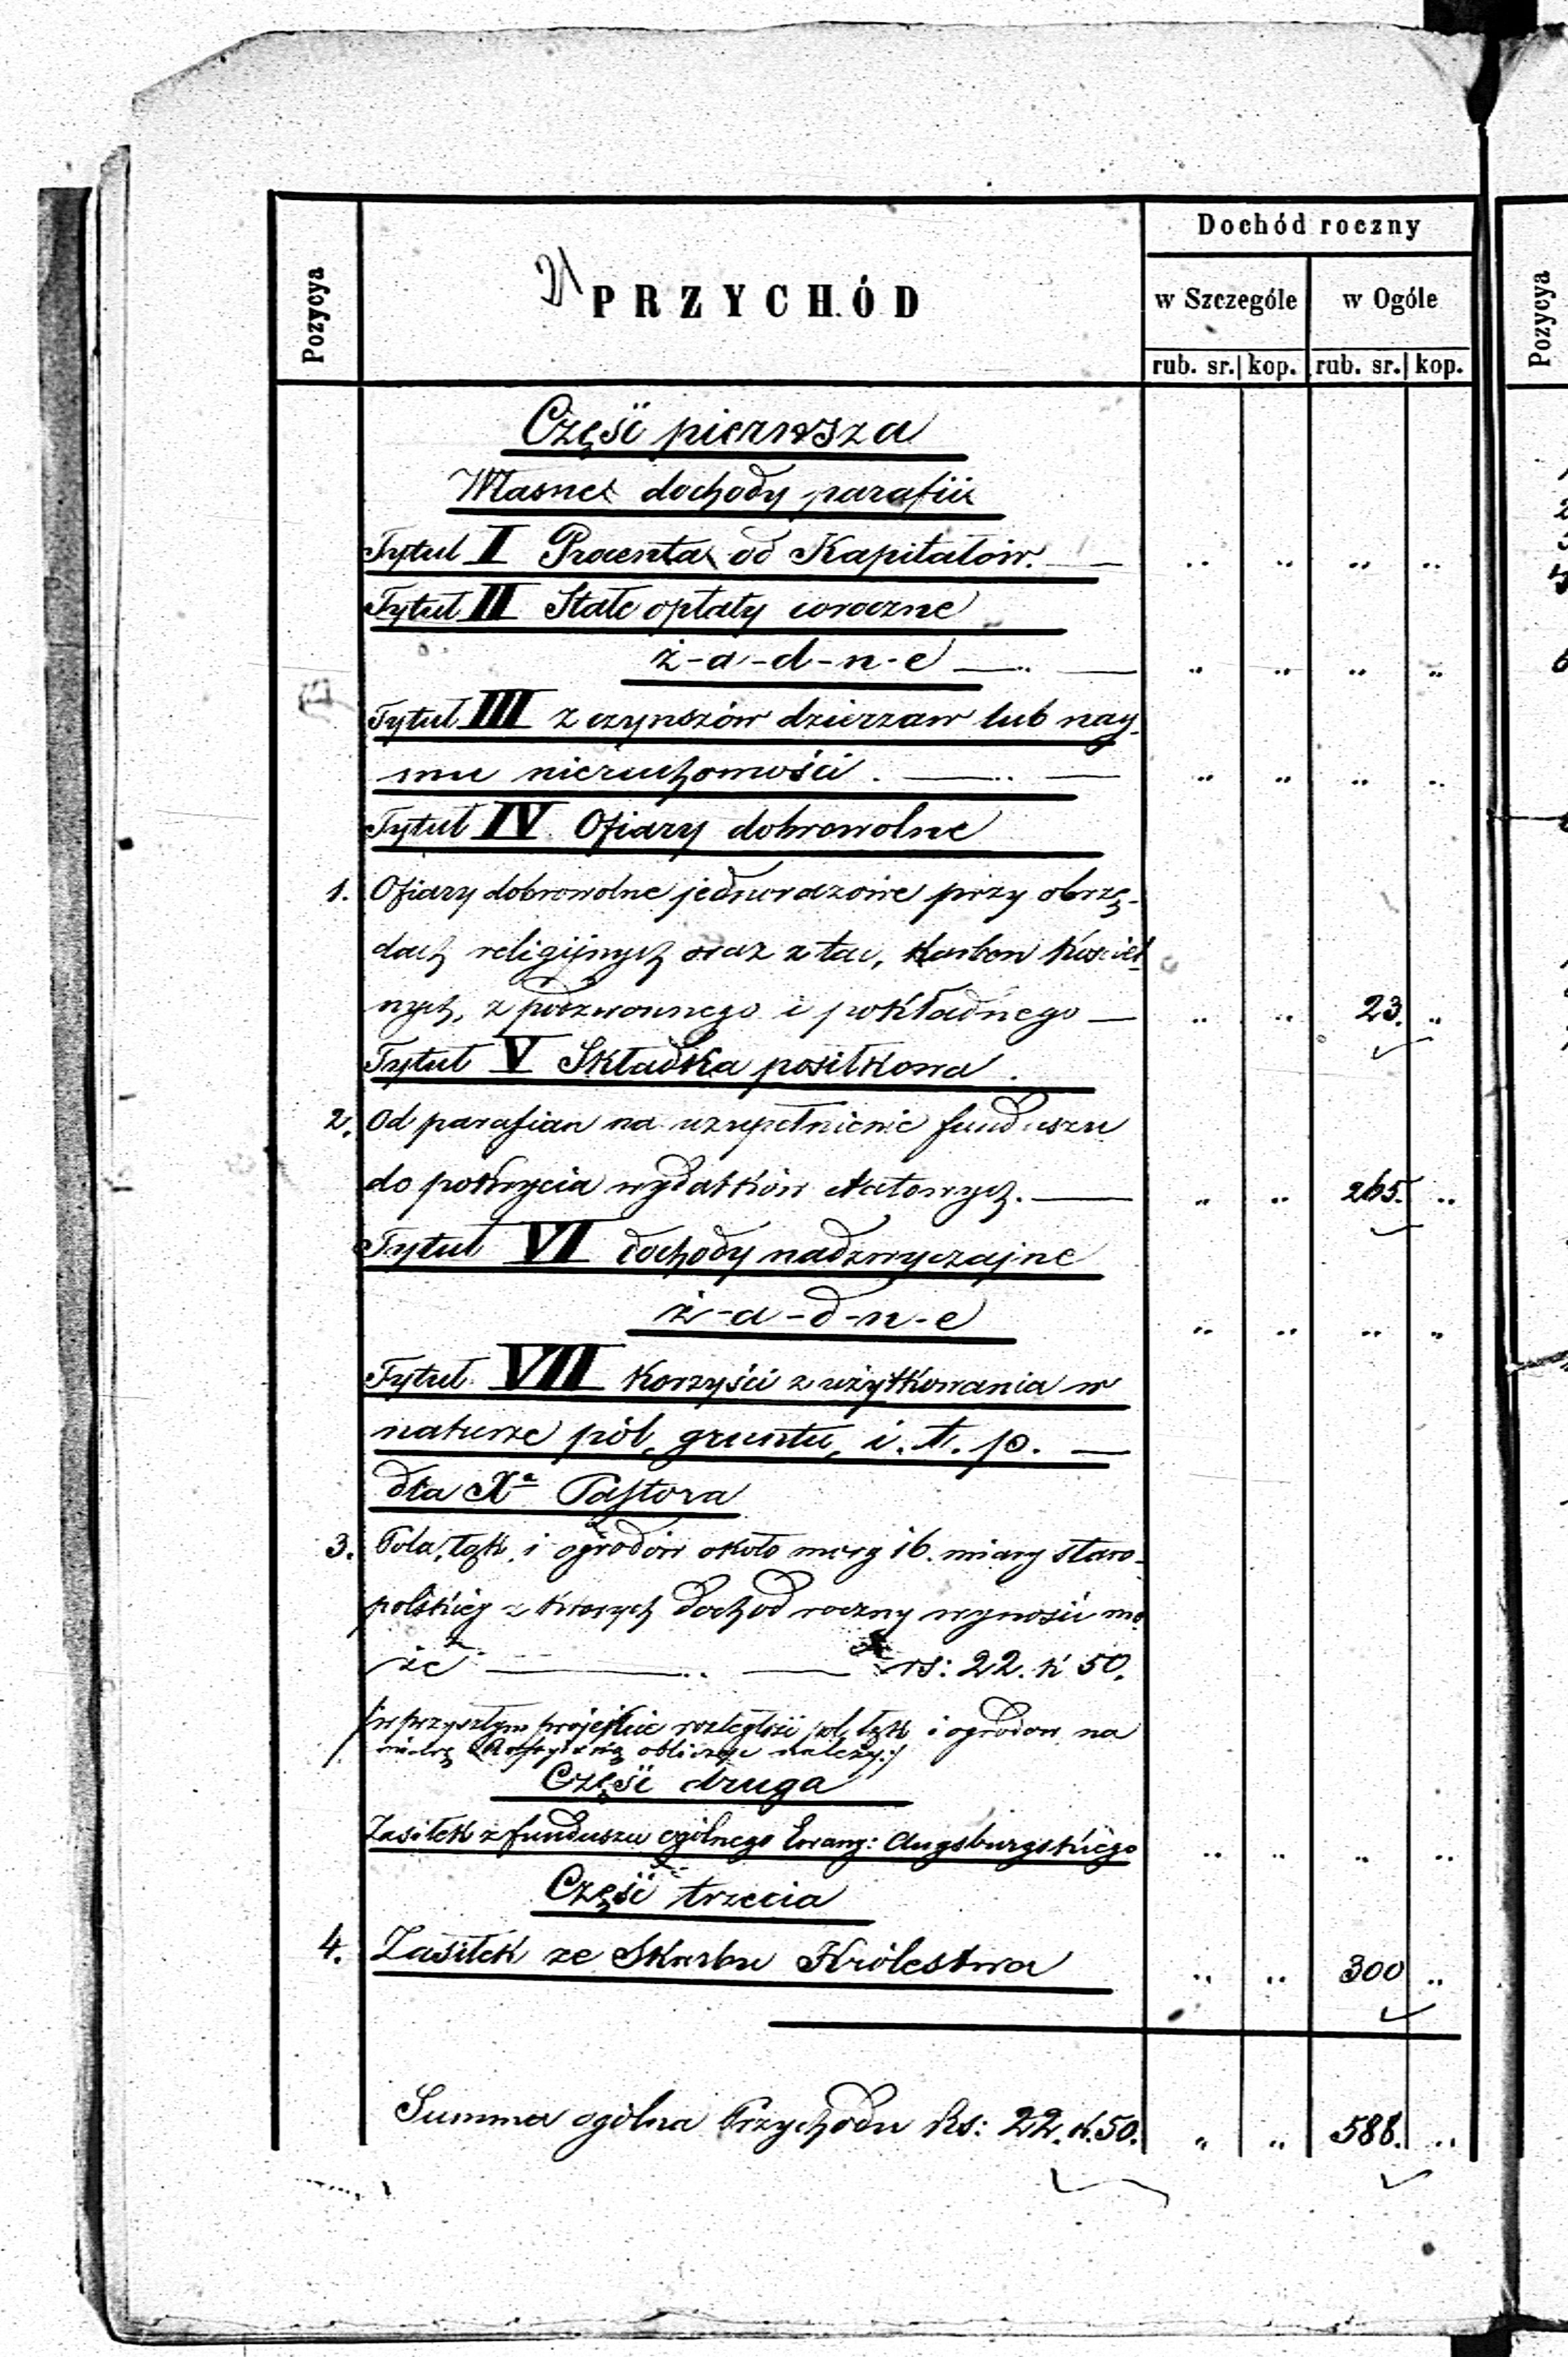 Dochód roczny
Pozycya
21 PRZYCHÓD
w Szczególe w Ogóle
rub. sr. kop. rub. sr. kop.
Pozycya
Część pierwsza
Własne dochody parafii
Tytuł I Procenta od Kapitałów. — " " " "
Tytuł II Stałe opłaty coroczne
ż-a-d-n-e — " — " " " "
Tytuł III z czynszów dzierzaw lub nay-
mu nieruchomości. — " — " " " "
Tytuł IV Ofiary dobrowolne
1. Ofiary dobrowolne jednorazowe przy obrzę-
dach religijnych oraz z tac, Karbon Kościel-
nych, z podzwonnego i pokładnego — " " 23. "
Tytuł V Składka posiłkowa.
2. Od parafian na uzupełnienie funduszu
do pokrycia wydatków etatowych. — " " 265. "
Tytuł VI dochody nadzwyczajne
ż-a-d-n-e " " " "
Tytuł VII Korzyści z użytkowania w
naturze pól, gruntu, i. t. p. —
dla Xa Pastora
3. Pola, łąk, i ogrodów około morg 16. miary staro-
polskiéj z których dochod roczny wynosić mo
że — " — rs: 22. k 50.
/:w przyszłym projekcie rozległość pól, łąk i ogrodow na
miarę obliczyć należy:/
Część druga
Zasiłek z funduszu ogólnego Ewang: Augsburgskiego " " " "
Część trzecia
4. Zasiłek ze Skarbu Królestwa " " 300 "
Summa ogólna Przychodu Rs: 22. k. 50. " " 588. "